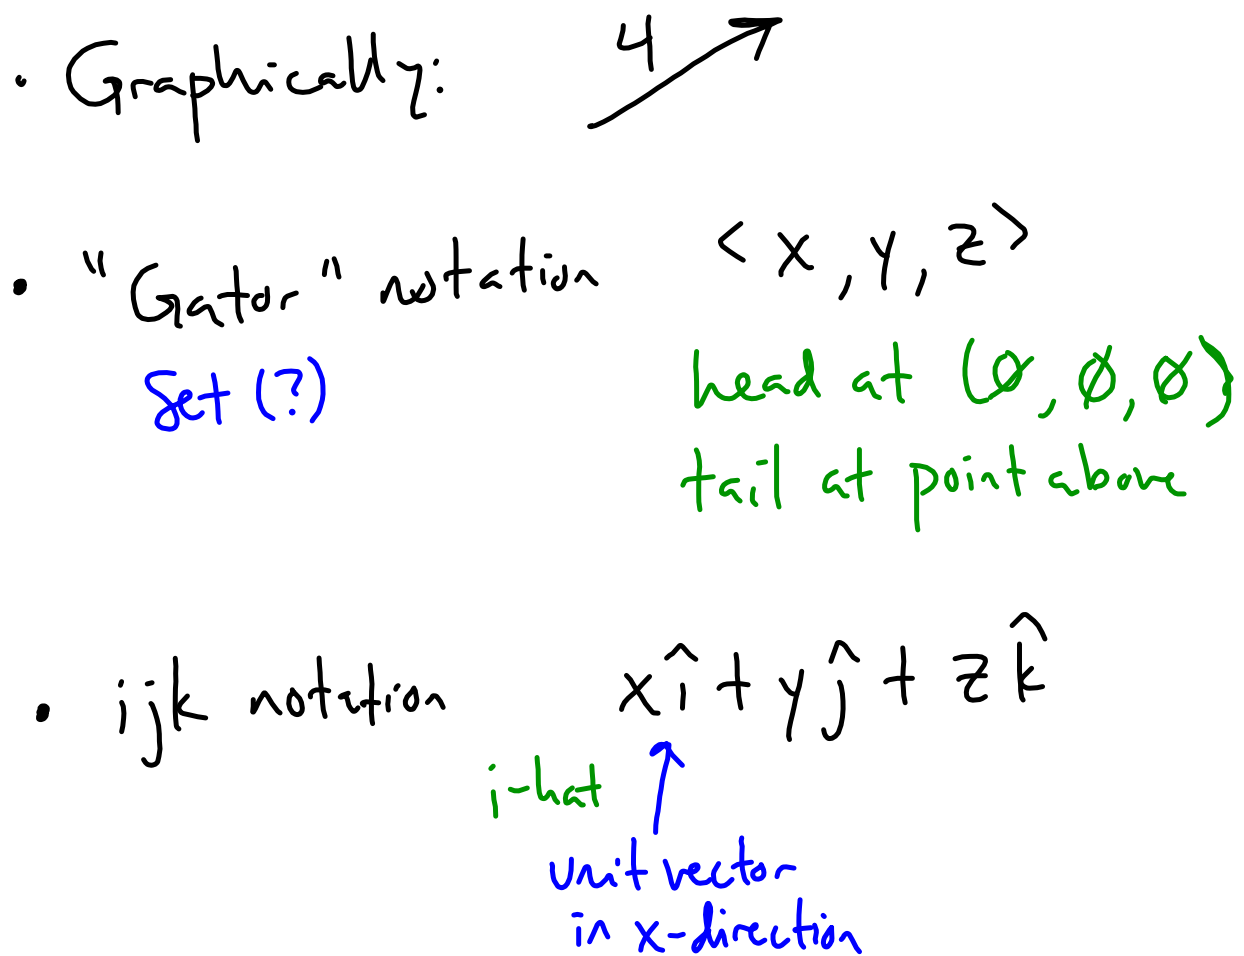 • Graphically: 4
• "Gator" notation <x, y, z>
Set (?)
head at (0, 0, 0)
tail at point above
• ijk notation xî + yĵ + zk̂
i-hat
unit vector
in x-direction